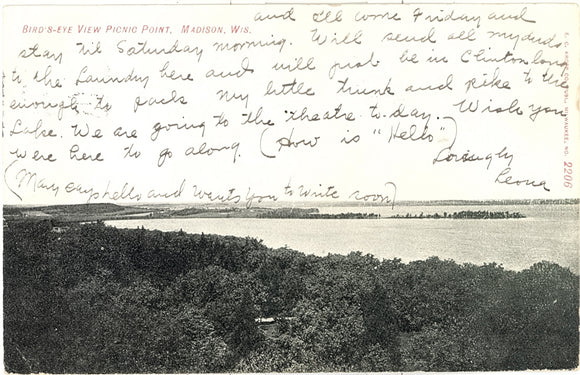 and I'll come Friday and
BIRD'S-EYE VIEW PICNIC POINT, MADISON, WIS.
stay til Saturday morning. Will send all my duds
to the Laundry here and will just be in Clinton long
enough to pack my little trunk and pike to the
Lake. We are going to the theatre to-day. Wish you
were here to go along. (How is "Hello")
Lovingly
Leona
(Mary says hello and wants you to write soon)
MILWAUKEE, NO. 2206